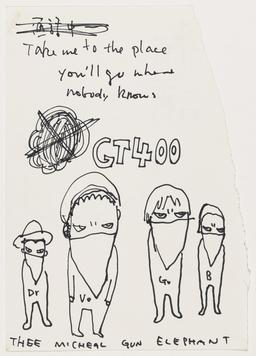 Take me to the place
you'll go where
nobody knows
GT400
Dr Vo Gu B
THEE MICHEAL GUN ELEPHANT